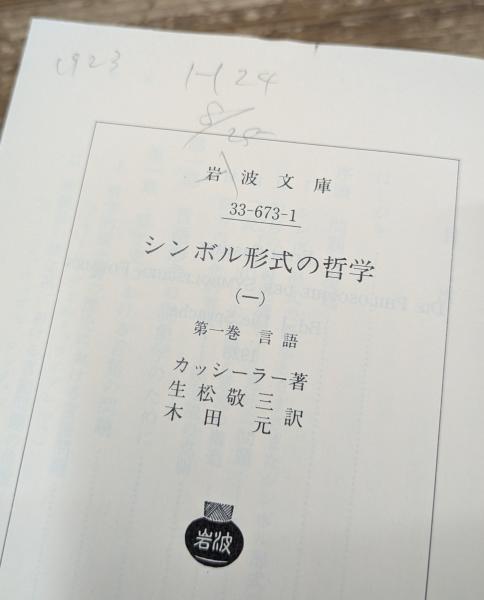 1923
H 24
8/25
岩波文庫
33-673-1
シンボル形式の哲学
(一)
第一巻 言語
カッシーラー著
生松敬三
木田元訳
岩波